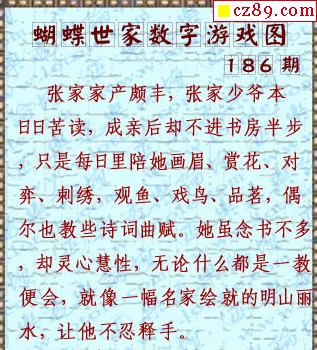 cz89.com
蝴蝶世家数字游戏图
186期
张家家产颇丰，张家少爷本
日日苦读，成亲后却不进书房半步
，只是每日里陪她画眉、赏花、对
弈、刺绣，观鱼、戏鸟、品茗，偶
尔也教些诗词曲赋。她虽念书不多
，却灵心慧性，无论什么都是一教
便会，就像一幅名家绘就的明山丽
水，让他不忍释手。